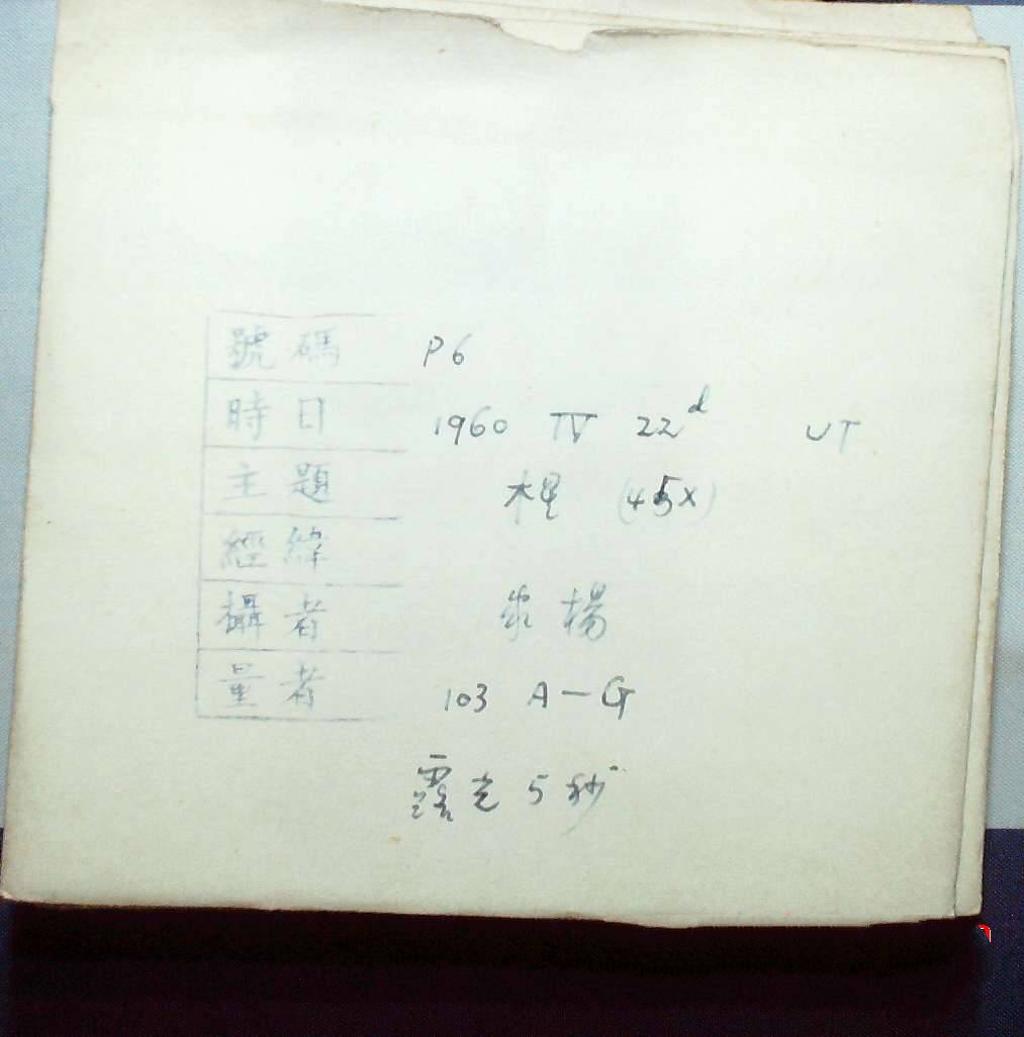 號碼 P6
時日 1960 IV 22d UT
主題 木星 (45x)
經緯
攝者 楊
量者 103 A-G
露光 5 秒